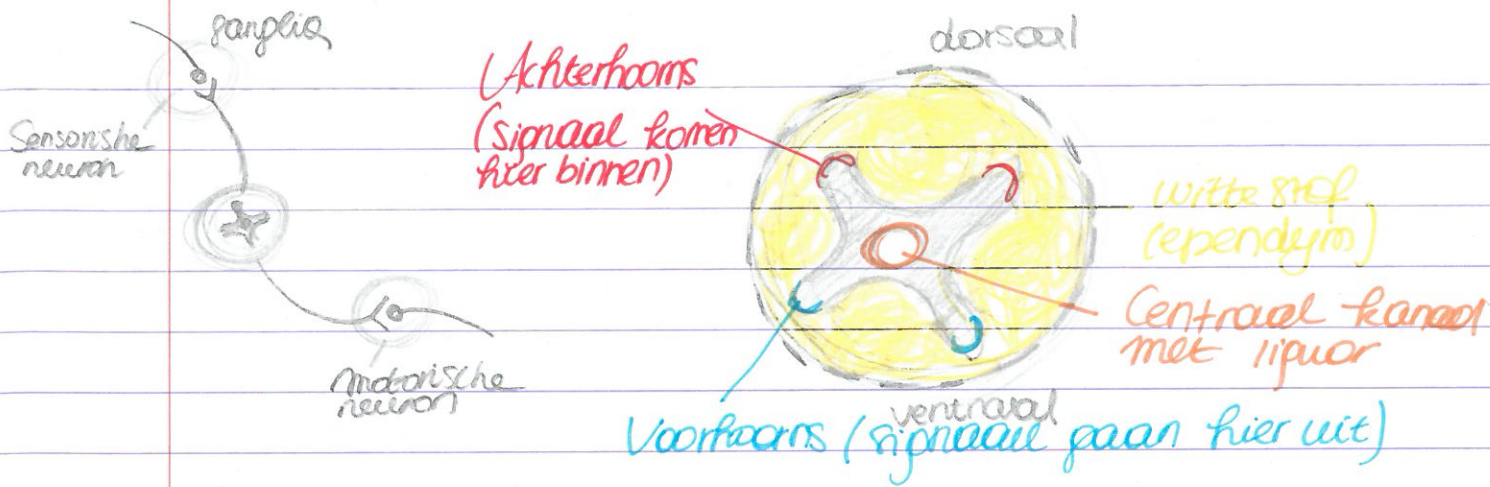 ganglia
Sensorishe
neuron
motorische
neuron
dorsaal
Achterhoorns
(signaal komen
hier binnen)
witte stof
(ependym)
Centraal kanaal
met liquor
ventraal
Voorhoorns (signaal gaan hier uit)